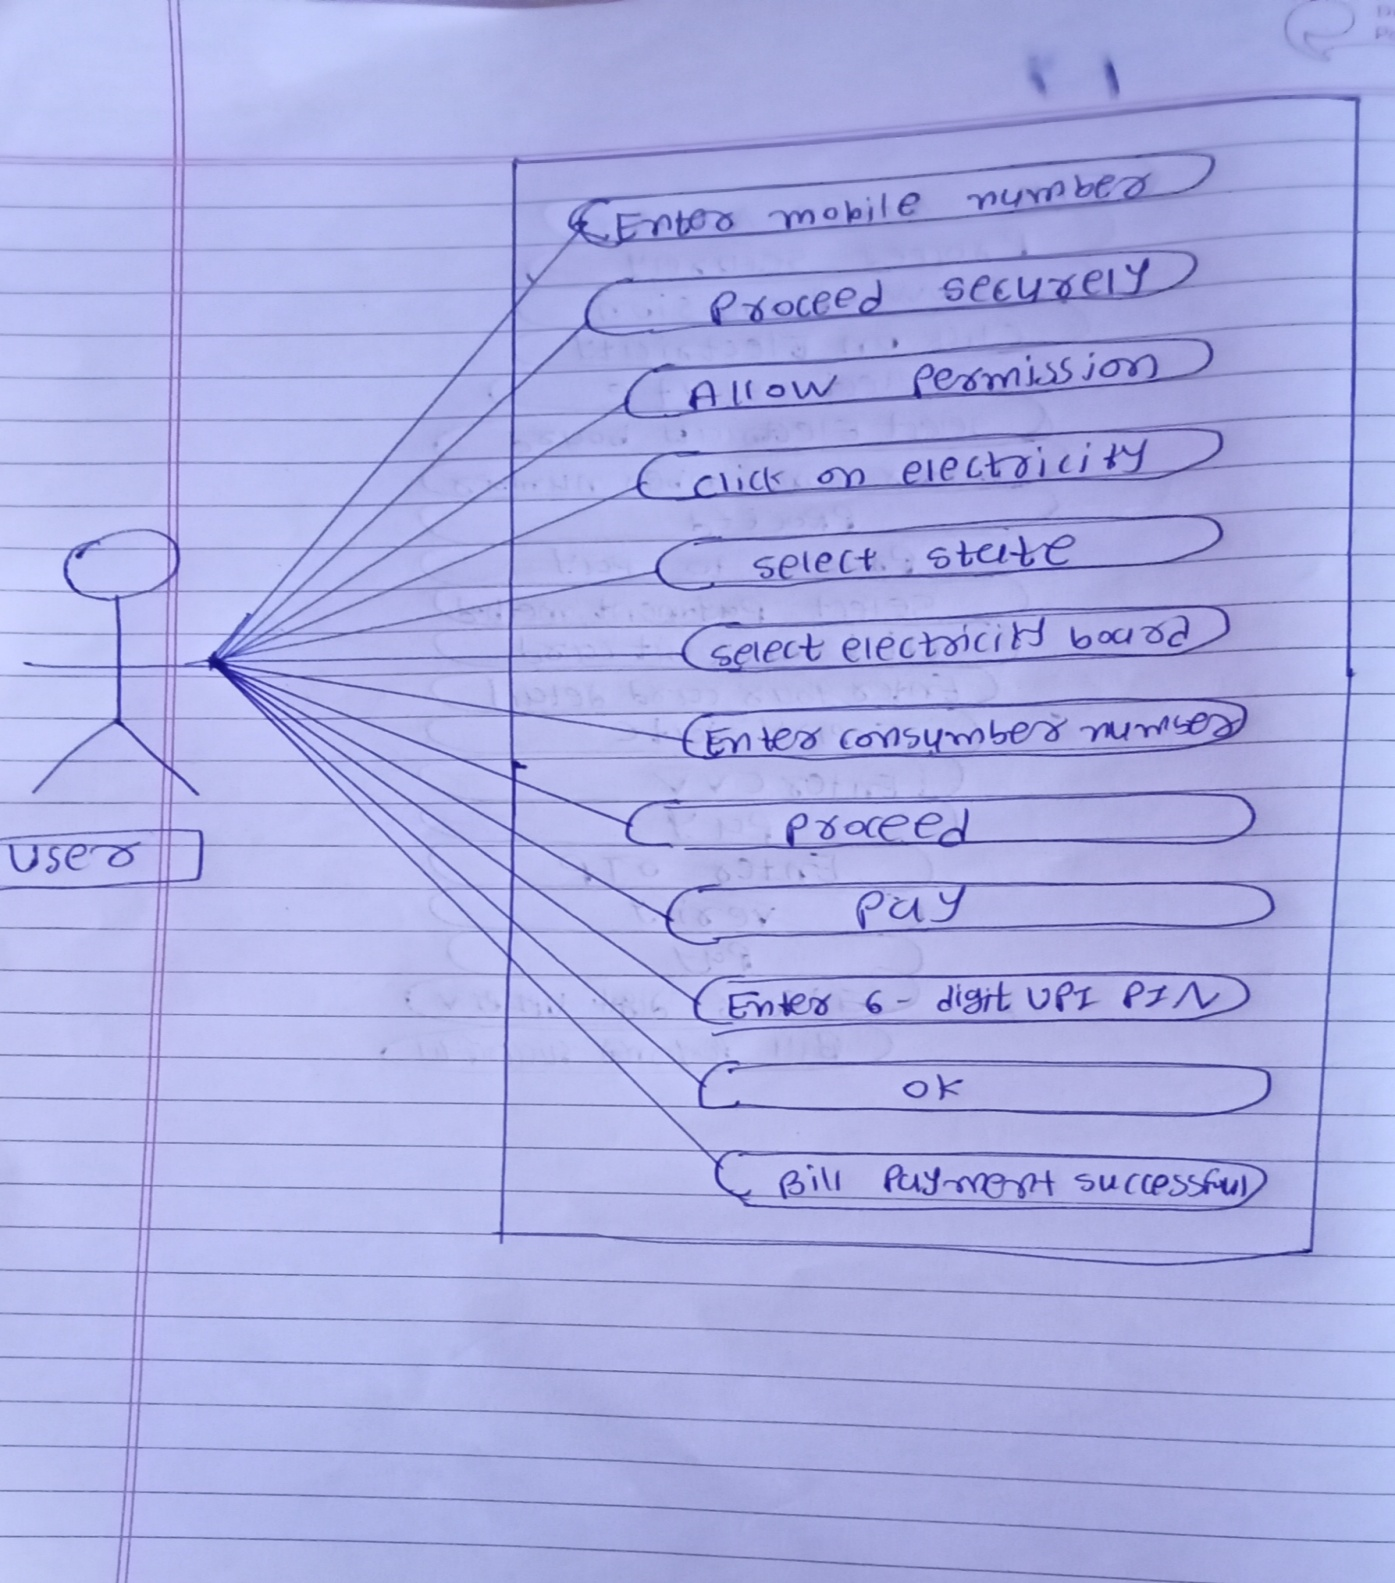 Enter mobile number
Proceed securely
Allow Permission
click on electricity
select state
select electricity board
Enter consumber number
User
Proceed
Pay
Enter 6 - digit UPI PIN
OK
Bill Payment successful